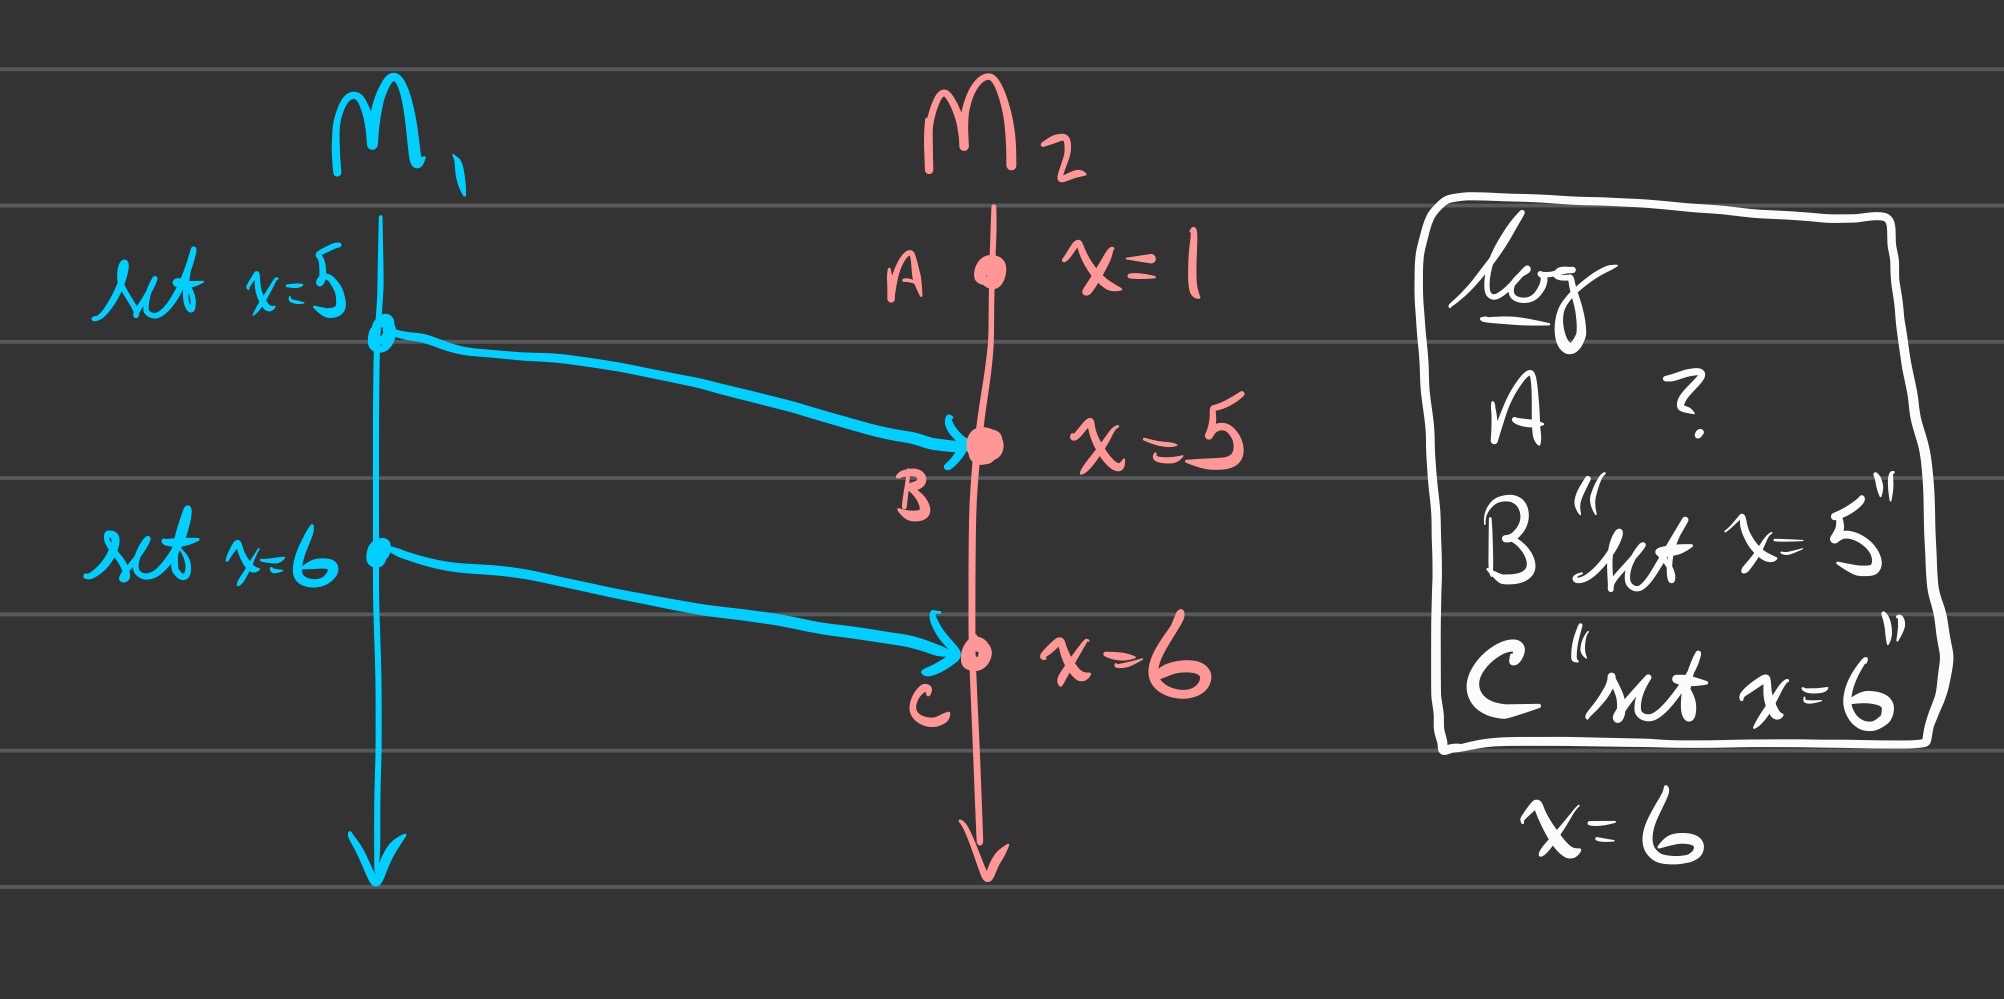 M1
set x=5
set x=6
M2
A x=1
B x=5
C x=6
log
A ?
B "set x=5"
C "set x=6"
x=6